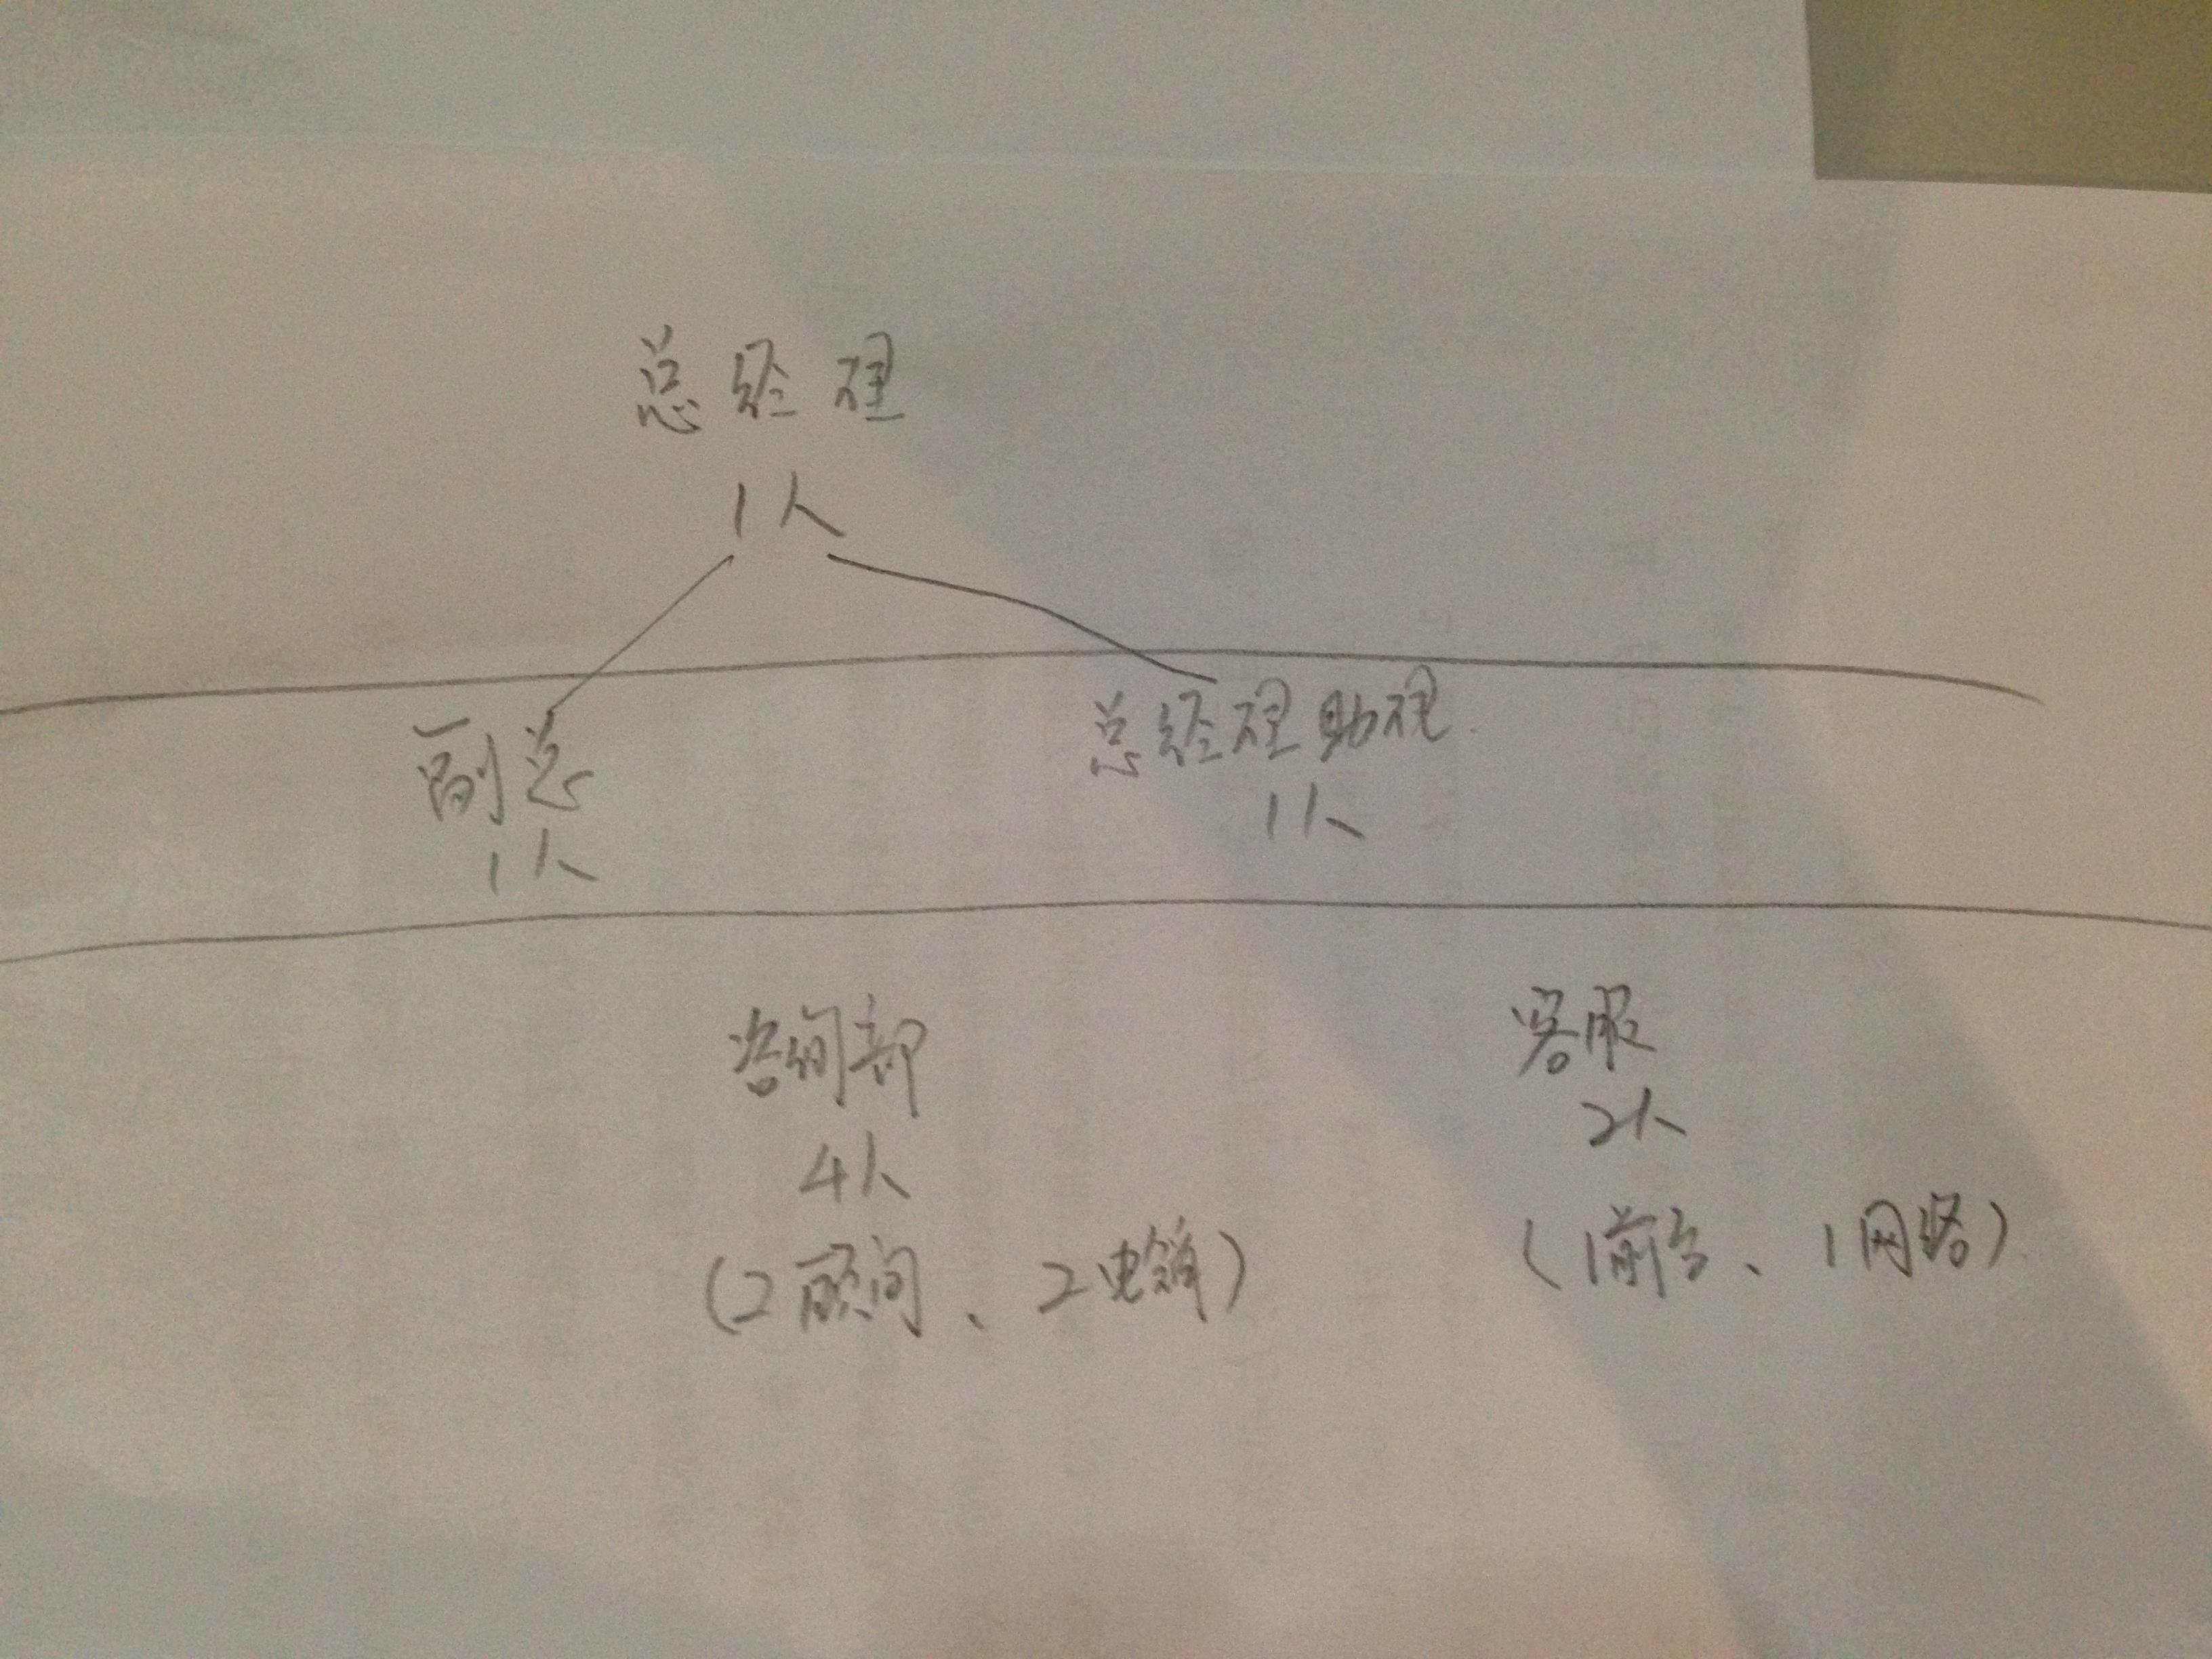 总经理
1人
副总
1人
总经理助理
1人
咨询部
4人
(2顾问、2电销)
客服
2人
(1前台、1网络)